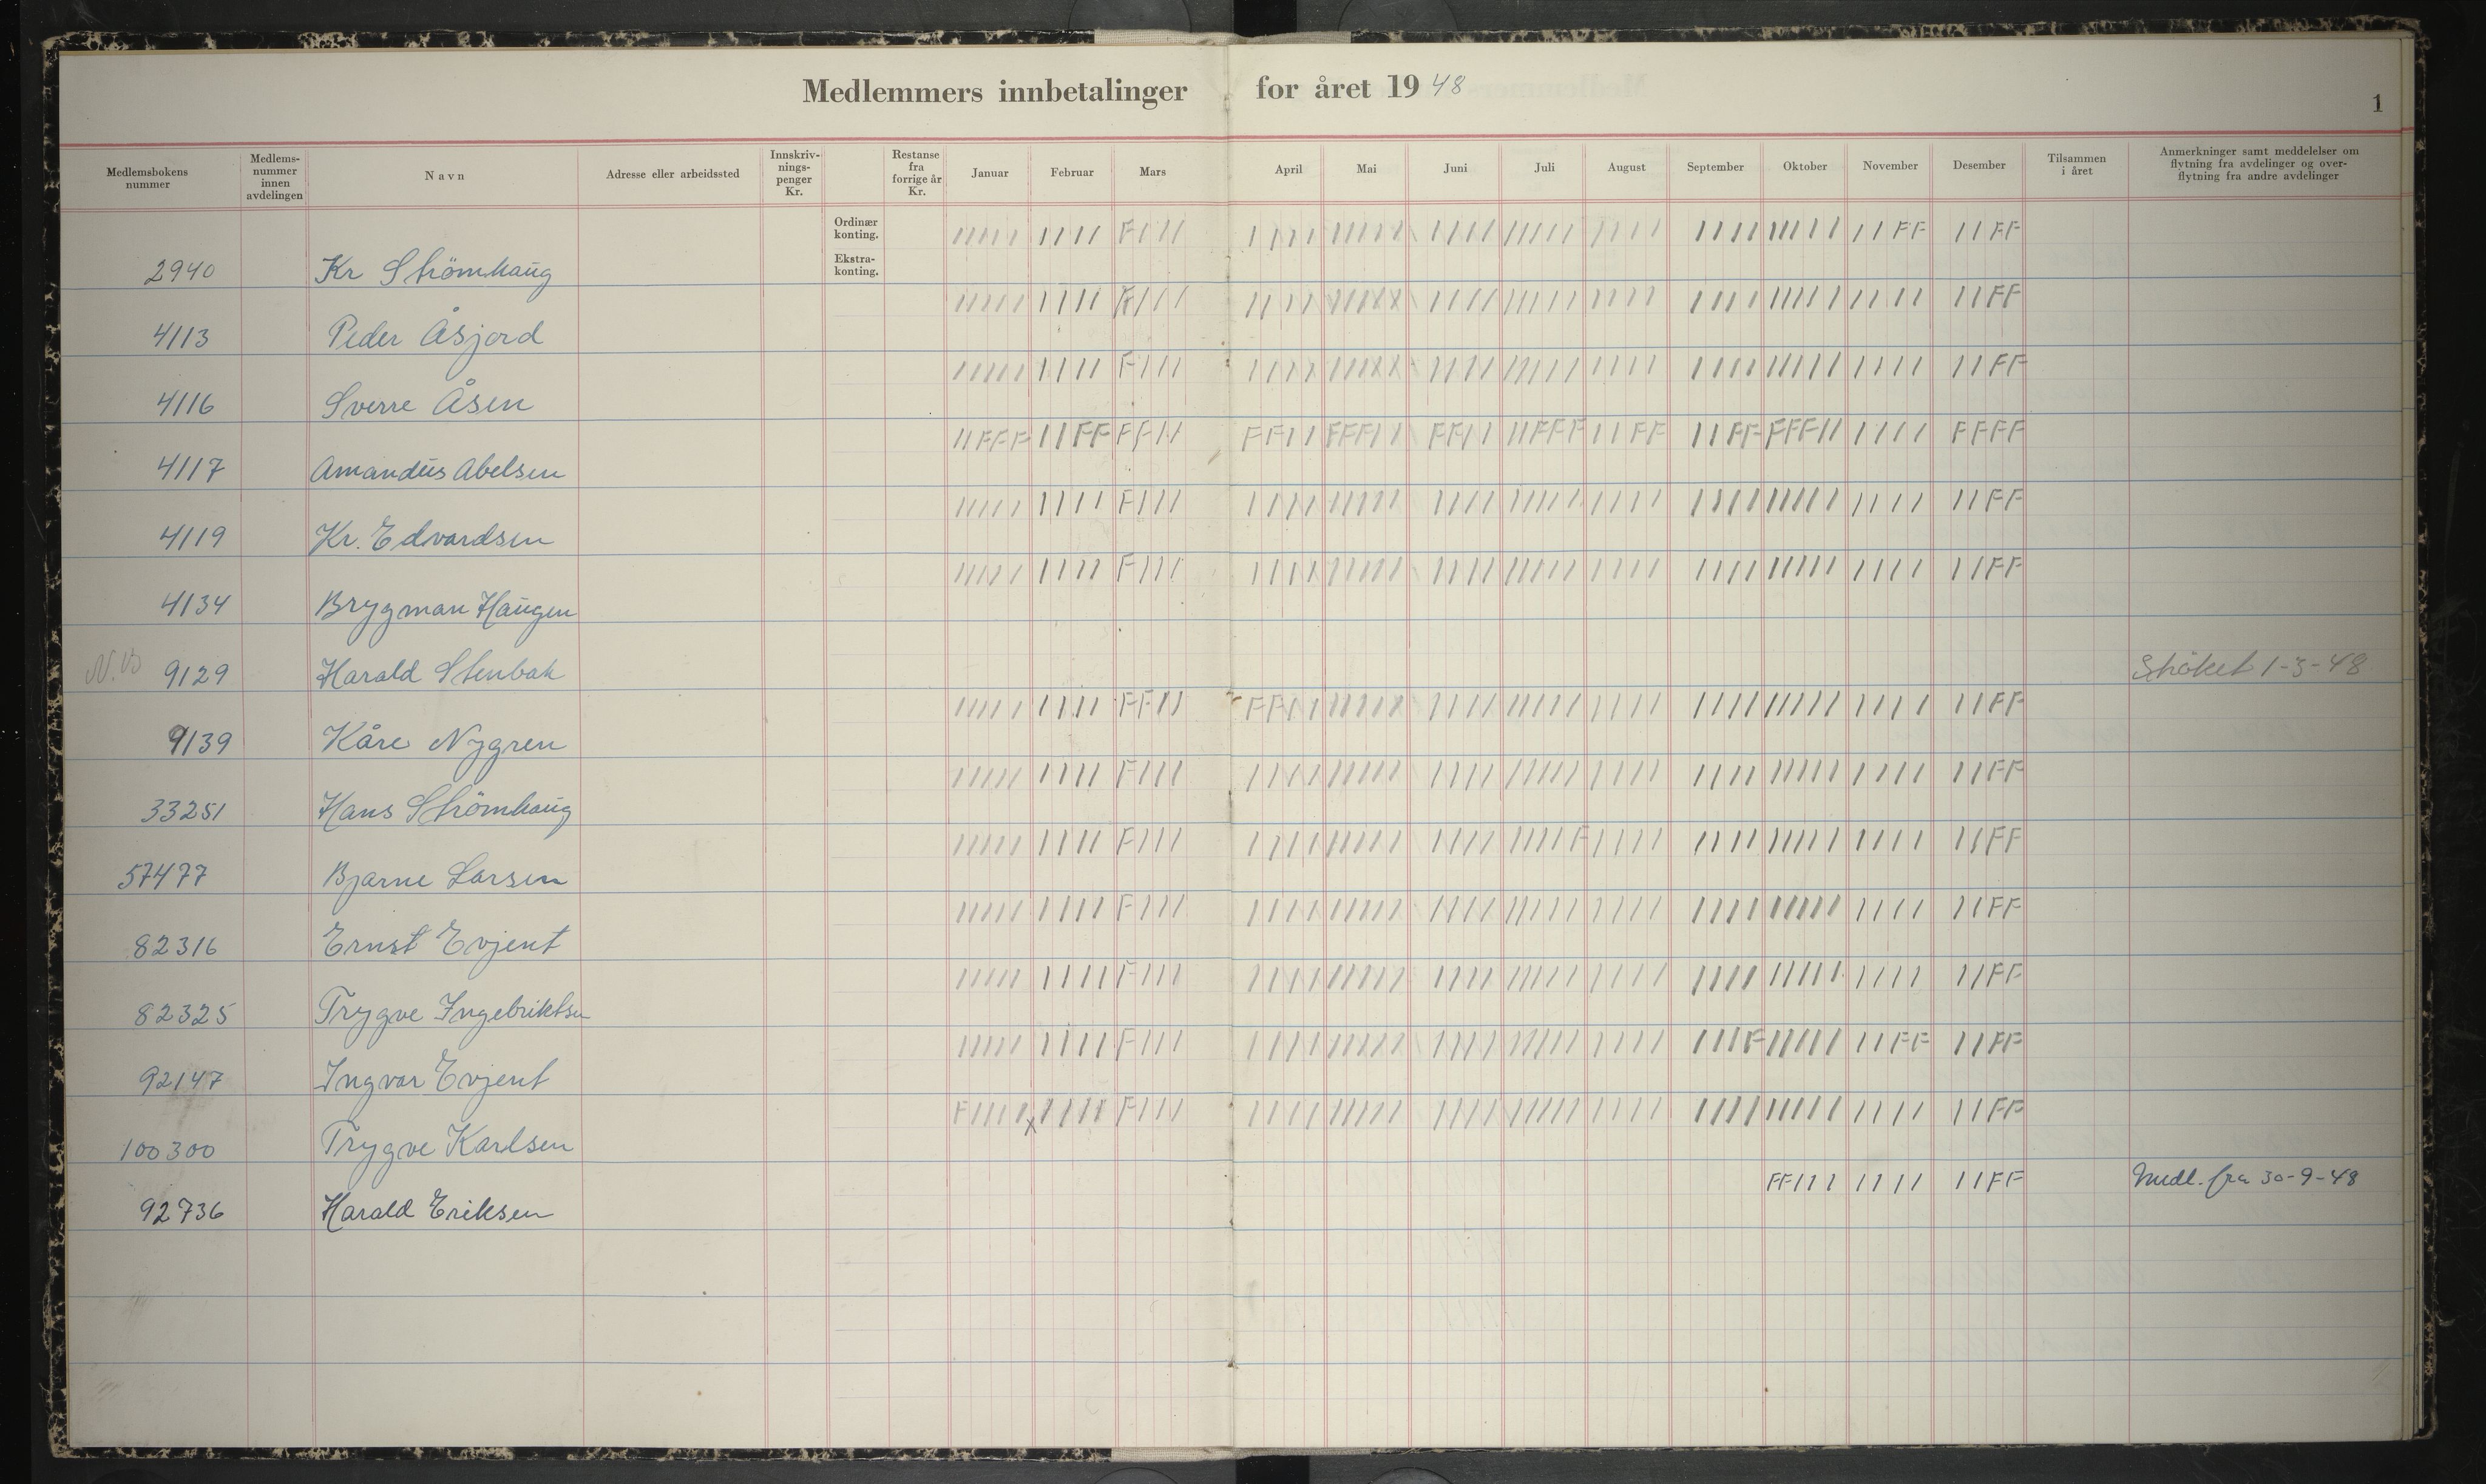 Medlemmers innbetalinger for året 1948
1
Medlemsbokens nummer
Medlems-nummer innen avdelingen
Navn
Adresse eller arbeidssted
Innskriv-nings-penger Kr.
Restanse fra forrige år Kr.
Januar Februar Mars April Mai Juni Juli August September Oktober November Desember
Tilsammen i året
Anmerkninger samt meddelelser om flytning fra avdelinger og over-flytning fra andre avdelinger
Ordinær konting. ///// //// F/// //// ///// //// ///// //// //// ///// //FF //FF
Ekstra-konting.
2940 Kr Strömhaug
///// //// F/// //// ///// //// ///// //// //// ///// //// //FF
4113 Peder Åsjord
///// //// F/// //// ///// //// ///// //// //// ///// //// //FF
4116 Sverre Åsen
//FFF //FF FF// FF// FFF// FF// //FFF //FF //FF FFF// //// FFFF
4117 Amandus Abelsen
///// //// F/// //// ///// //// ///// //// //// ///// //// //FF
4119 Kr. Edvardsen
///// //// F/// //// ///// //// ///// //// //// ///// //// //FF
4134 Brygman Haugen
N.B 9129 Harald Stenbak Ströket 1-3-48
///// //// FF// FF// ///// //// ///// //// //// ///// //// //FF
9139 Kåre Nygren
///// //// F/// //// ///// //// ///// //// //// ///// //// //FF
33251 Hans Strömhaug
///// //// F/// //// ///// //// ////F //// //// ///// //// //FF
57477 Bjarne Larsen
///// //// F/// //// ///// //// ///// //// //// ///// //// //FF
82316 Ernst Evjent
///// //// F/// //// ///// //// ///// //// //// ///// //// //FF
82325 Trygve Ingebriktsen
///// //// F/// //// ///// //// ///// //// ///F ///// //FF //FF
92147 Ingvar Evjent
F//// x //// F/// //// ///// //// ///// //// //// ///// //// //FF
100300 Trygve Karlsen
FF/// //// //FF Medl. fra 30-9-48
92736 Harald Eriksen